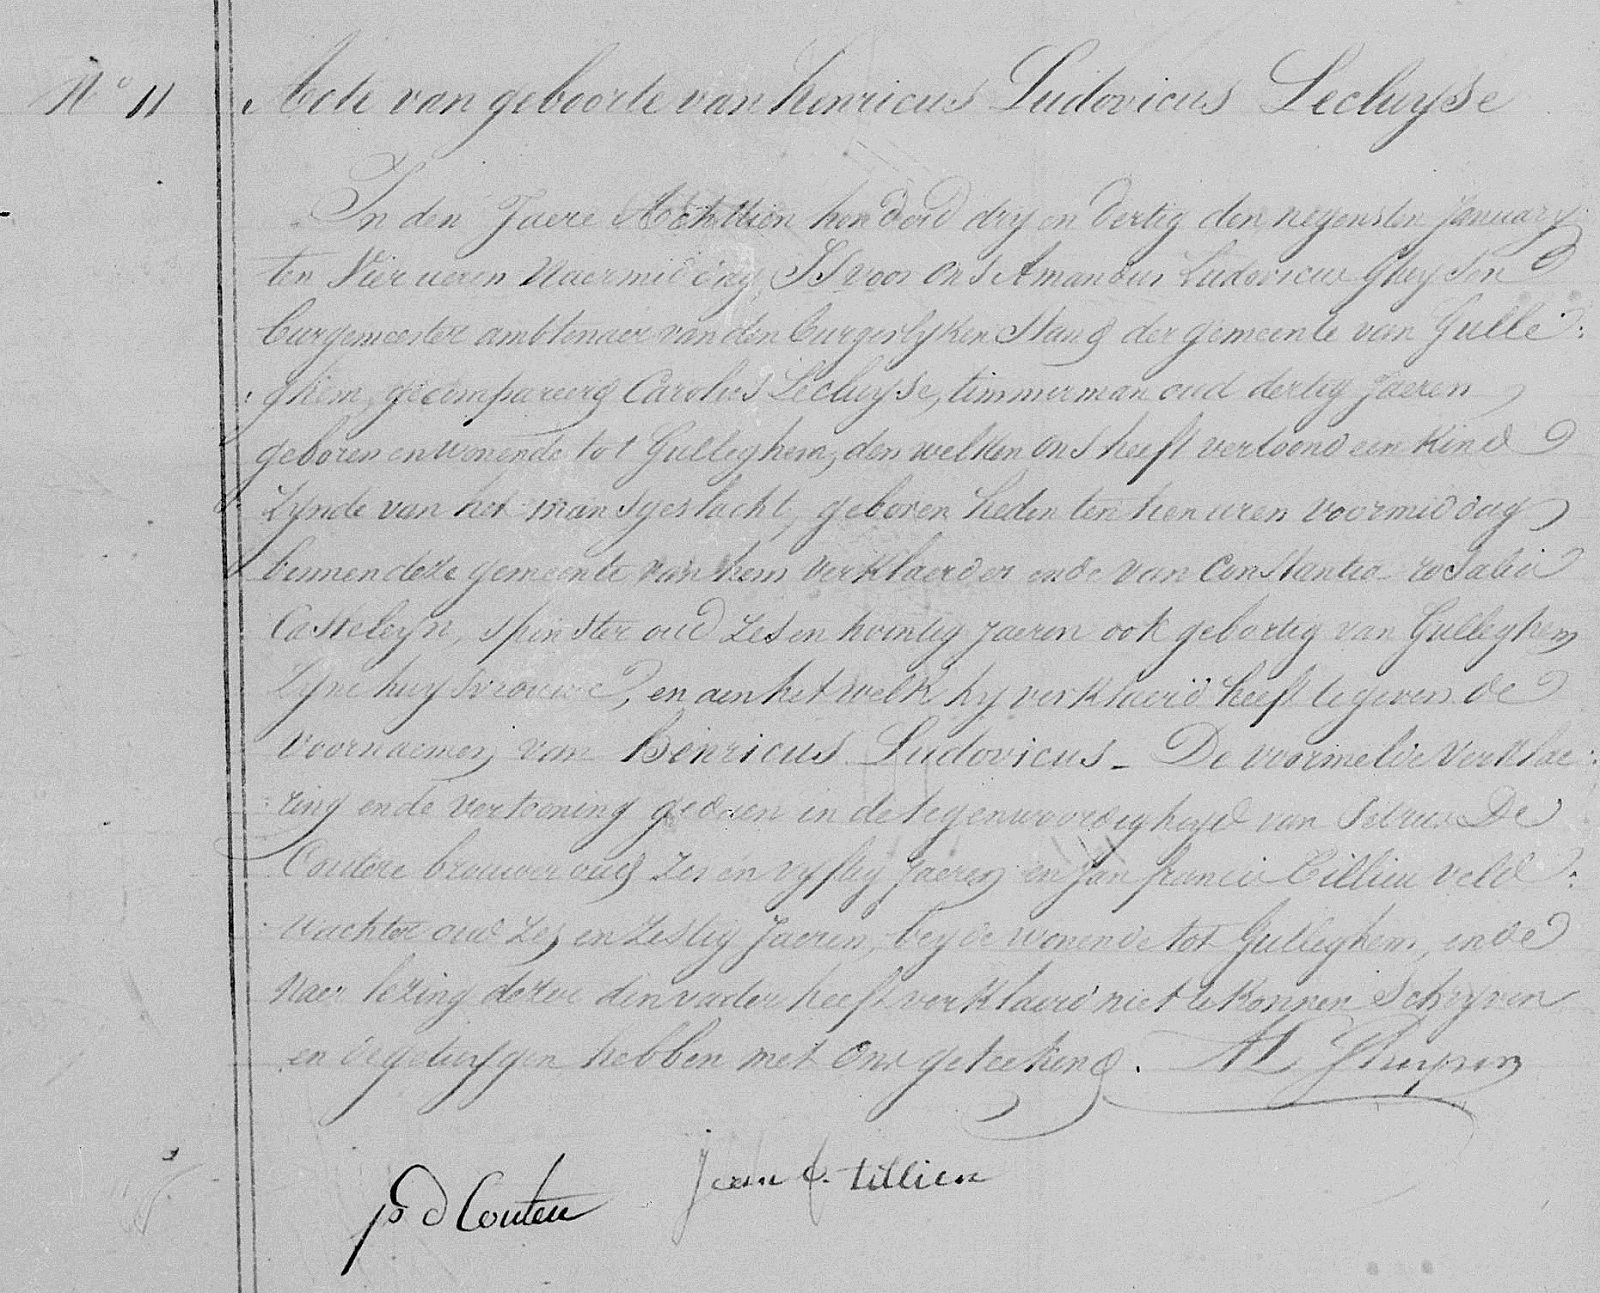 N° 11
Acte van geboorte van henricus Ludovicus Lecluyse
In den Jaere Achttien honderd dry en dertig den negensten January
ten Vier ueren Naermiddag Is voor ons Amandus Ludovicus Gheysen
burgemeester ambtenaer van den burgerlyken Stand der gemeente van Gulle:
:ghem, gecompareerd Carolus Lecluyse, timmerman oud dertig Jaeren
geboren en wonende tot Gulleghem, den welken ons heeft vertoond een kind
Zynde van het mansgeslacht, geboren heden ten hen uren voormiddag
binnen deze gemeente van hem verklaerder ende van Constantia rosalia
Casteleyn, spinster oud zes en twintig jaeren ook gebortig van Gulleghem
Zyne huysvrouwe, en aen het welk hy verklaerd heeft te geven de
voornaemen van Henricus Ludovicus - De voormelde verklae:
:ring ende vertooning gedaen in de tegenwoordigheyd van Petrus De
Coutere brouwer oud Zes en vyftig Jaeren en jan francis Tillieu veld:
:wachter oud Zes en Zestig Jaeren, beyde wonende tot Gulleghem, ende
Naer lezing dezer den vader heeft verklaerd niet te konnen Schryven
en de getuygen hebben met Ons geteekend. AL Gheysen
Jean f. tillieu
p d Coutere